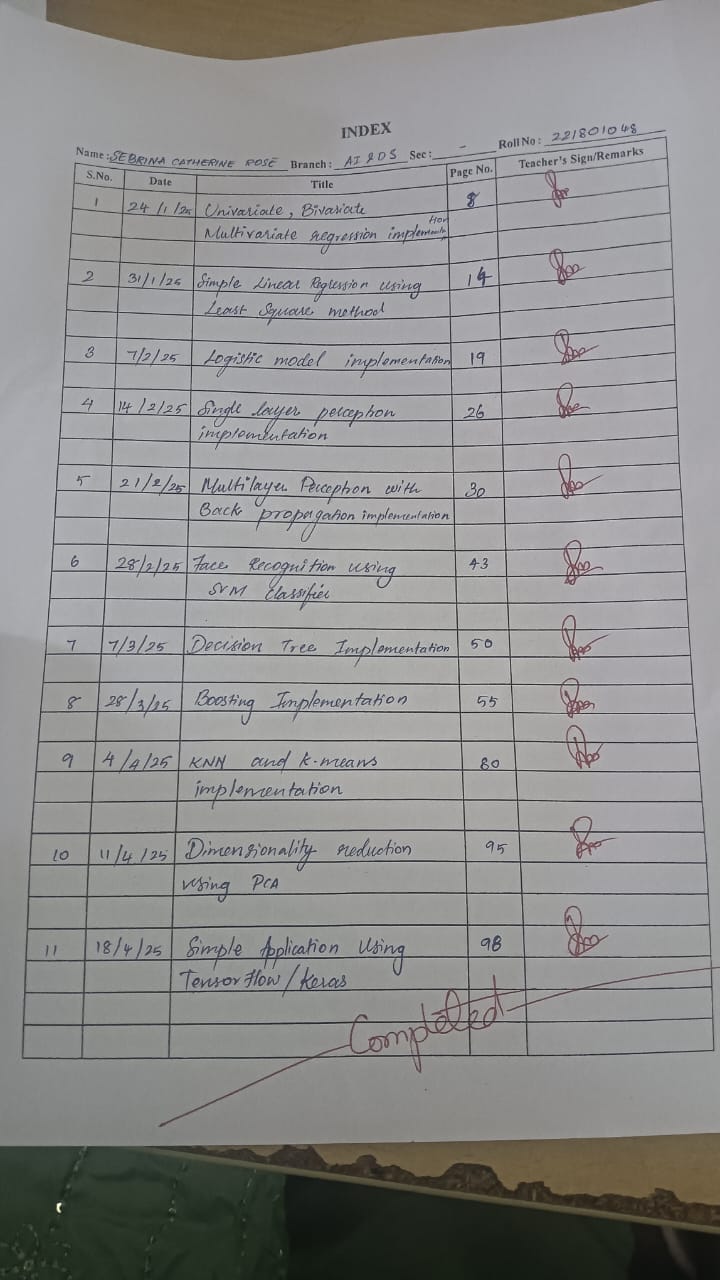 INDEX
Name: SEBRINA CATHERINE ROSE Branch: AI & DS Sec: - Roll No: 221801048
S.No. Date Title Page No. Teacher's Sign/Remarks
1 24/1/25 Univariate, Bivariate 8
Multivariate regression implementation
2 31/1/25 Simple Linear Regression using 14
Least Square method
3 7/2/25 Logistic model implementation 19
4 14/2/25 Single layer perception 26
implementation
5 21/2/25 Multilayer Perception with 30
Back propagation implementation
6 28/2/25 Face Recognition using 43
SVM Classifier
7 7/3/25 Decision Tree Implementation 50
8 28/3/25 Boosting Implementation 55
9 4/4/25 KNN and K-means 80
implementation
10 11/4/25 Dimensionality reduction 95
using PCA
11 18/4/25 Simple Application Using 98
Tensor Flow/Keras
Completed